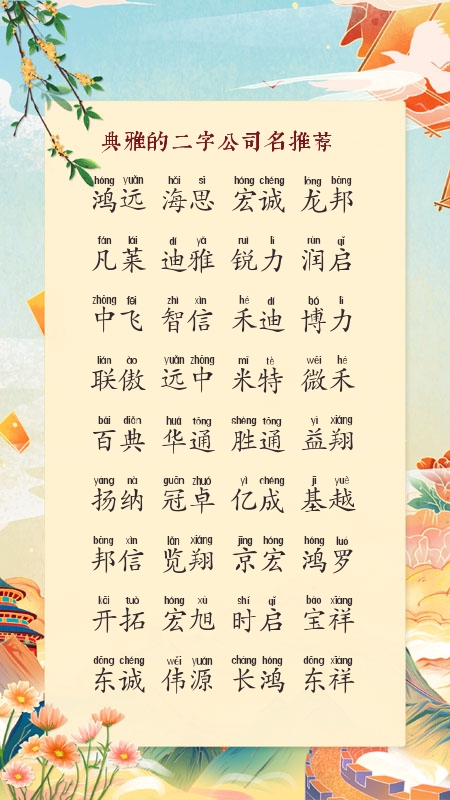 典雅的二字公司名推荐
hóng yuǎn hǎi sī hóng chéng lóng bāng
鸿远 海思 宏诚 龙邦
fán lái dí yǎ ruì lì rùn qǐ
凡莱 迪雅 锐力 润启
zhōng fēi zhì xìn hé dí bó lì
中飞 智信 禾迪 博力
lián ào yuǎn zhōng mǐ tè wēi hé
联傲 远中 米特 微禾
bǎi diǎn huá tōng shèng tōng yì xiáng
百典 华通 胜通 益翔
yáng nà guān zhuó yì chéng jī yuè
扬纳 冠卓 亿成 基越
bāng xìn lǎn xiáng jīng hóng hóng luó
邦信 览翔 京宏 鸿罗
kāi tuò hóng xù shí qǐ bǎo xiáng
开拓 宏旭 时启 宝祥
dōng chéng wěi yuán cháng hóng dōng xiáng
东诚 伟源 长鸿 东祥